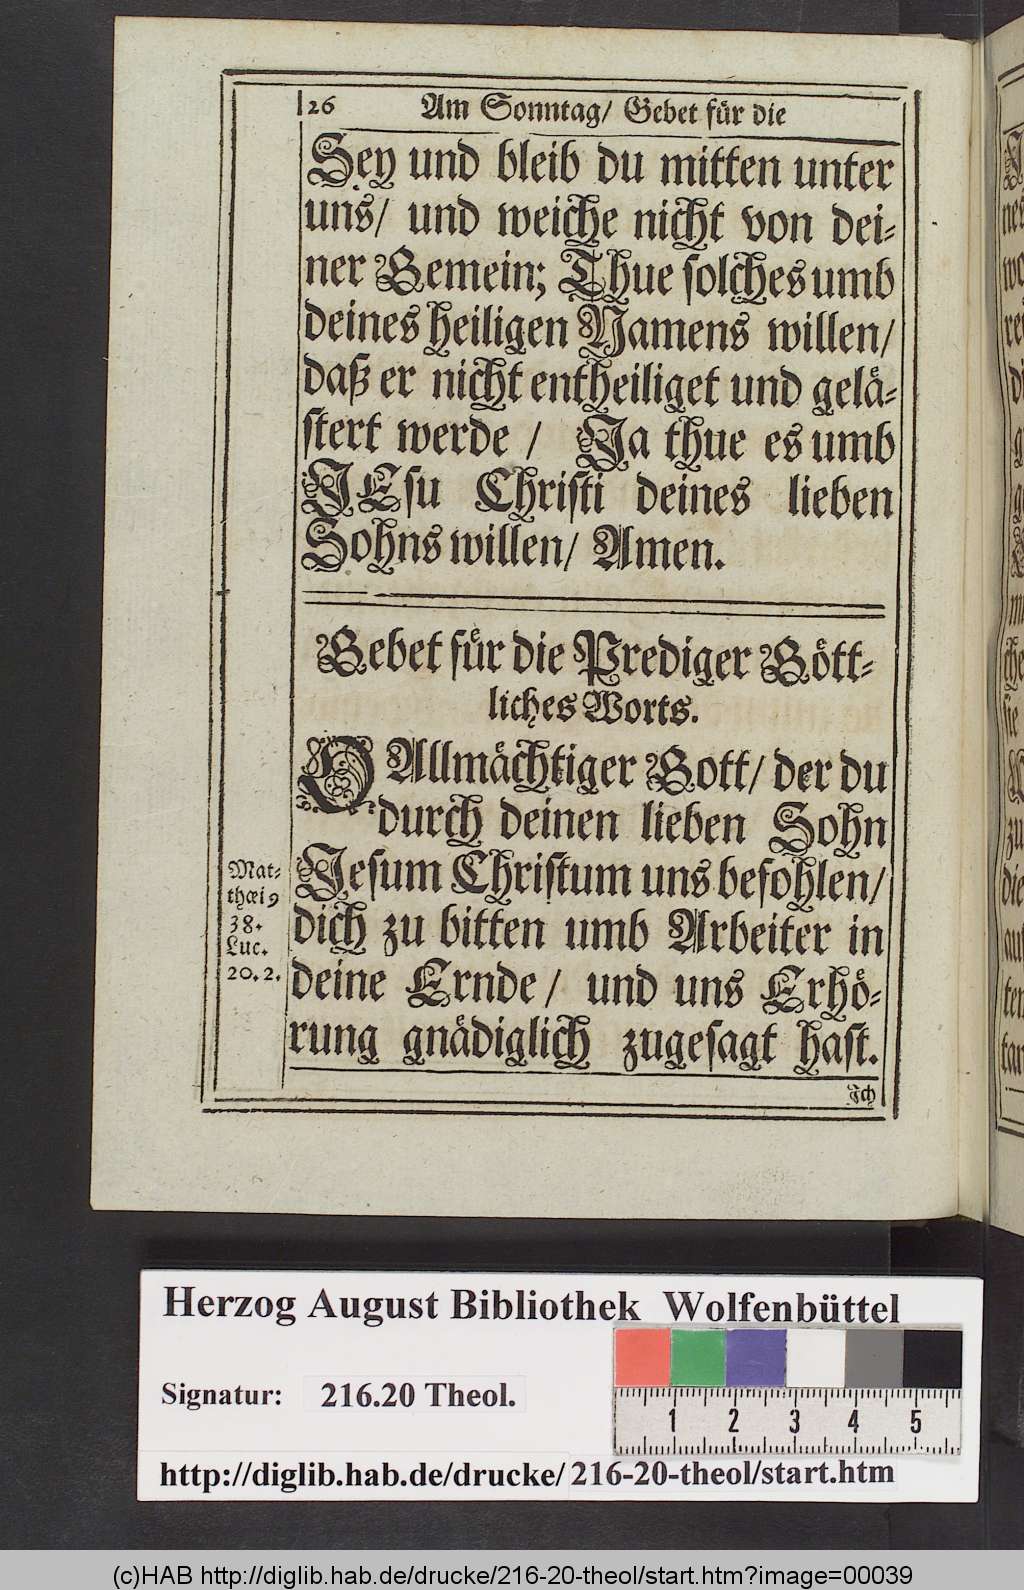 26 Am Sonntag/ Gebet für die
Sey und bleib du mitten unter
uns/ und weiche nicht von dei-
ner Gemein; Thue solches umb
deines heiligen Namens willen/
daß er nicht entheiliget und gelä-
stert werde / Ja thue es umb
JEsu Christi deines lieben
Sohns willen/ Amen.
Gebet für die Prediger Gött-
liches Worts.
O Allmächtiger Gott/ der du
durch deinen lieben Sohn
Jesum Christum uns befohlen/
dich zu bitten umb Arbeiter in
deine Ernde/ und uns Erhö-
rung gnädiglich zugesagt hast.
Mat-
thæi 9
38.
Luc.
20. 2.
Ich
Herzog August Bibliothek Wolfenbüttel
Signatur: 216.20 Theol.
1 2 3 4 5
http://diglib.hab.de/drucke/216-20-theol/start.htm
(c)HAB http://diglib.hab.de/drucke/216-20-theol/start.htm?image=00039